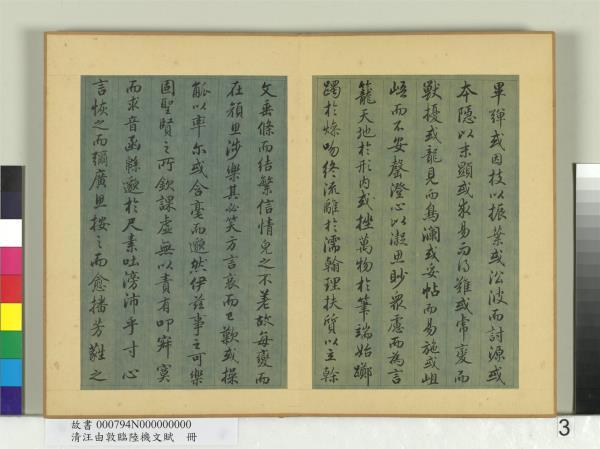 畢彈或因枝以振葉或㳂波而討源或
本隱以末顯或求易而得難或常變而
獸擾或龍見而鳥瀾或妥帖而易施或岨
峿而不安罄澄心以凝思眇衆慮而為言
籠天地於形内或挫萬物於筆端始躑
躅於燥吻終流離於濡翰理扶質以立幹
文垂條而結繁信情皃之不差故每變而
在顔思涉樂其必笑方言哀而已歎或操
觚以率尔或含毫而邈然伊玆事之可樂
固聖賢之所欽課虛無以責有叩寂寞
而求音函緜邈於尺素吐滂沛乎寸心
言恢之而彌廣思按之而愈播芳蕤之
故書 000794N000000000
清汪由敦臨陸機文賦 冊
3